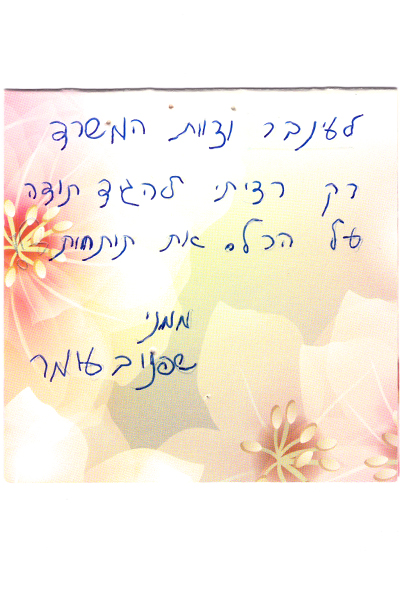 לעינבר וצוות המשרד
רק רציתי להגיד תודה
על הכל. את תותחית
ממני
עומר